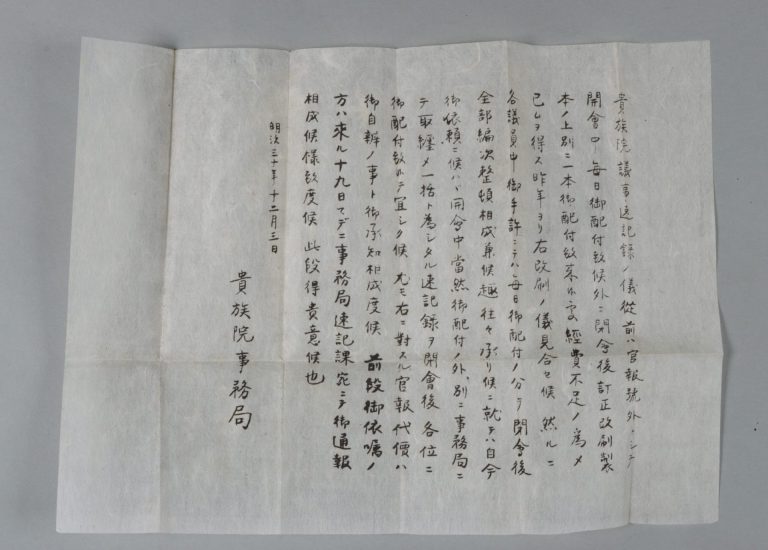 貴族院議事速記録ノ儀従前ハ官報號外トシテ
開會中毎日御配付致候外ニ閉會後訂正改刷製
本ノ上別ニ一本御配付致来候處經費不足ノ為メ
已ムヲ得ス昨年ヨリ右改刷ノ儀見合セ候然ルニ
各議員中御手許ニテハ毎日御配付ノ分ヲ閉會後
全部編次整頓相成兼候趣往々承リ候ニ就テハ自今
御依頼ニ候ハヽ開會中當然御配付ノ外別ニ事務局ニ
テ取纏メ一括ト為シタル速記録ヲ閉會後各位ニ
御配付致スモ宜シク候尤モ右ニ對スル官報代價ハ
御自辨ノ事ト御承知相成度候前段御依嘱ノ
方ハ來ル十九日マデニ事務局速記課宛ニテ御通報
相成候様致度候此段得貴意候也
明治三十年十二月三日
貴族院事務局